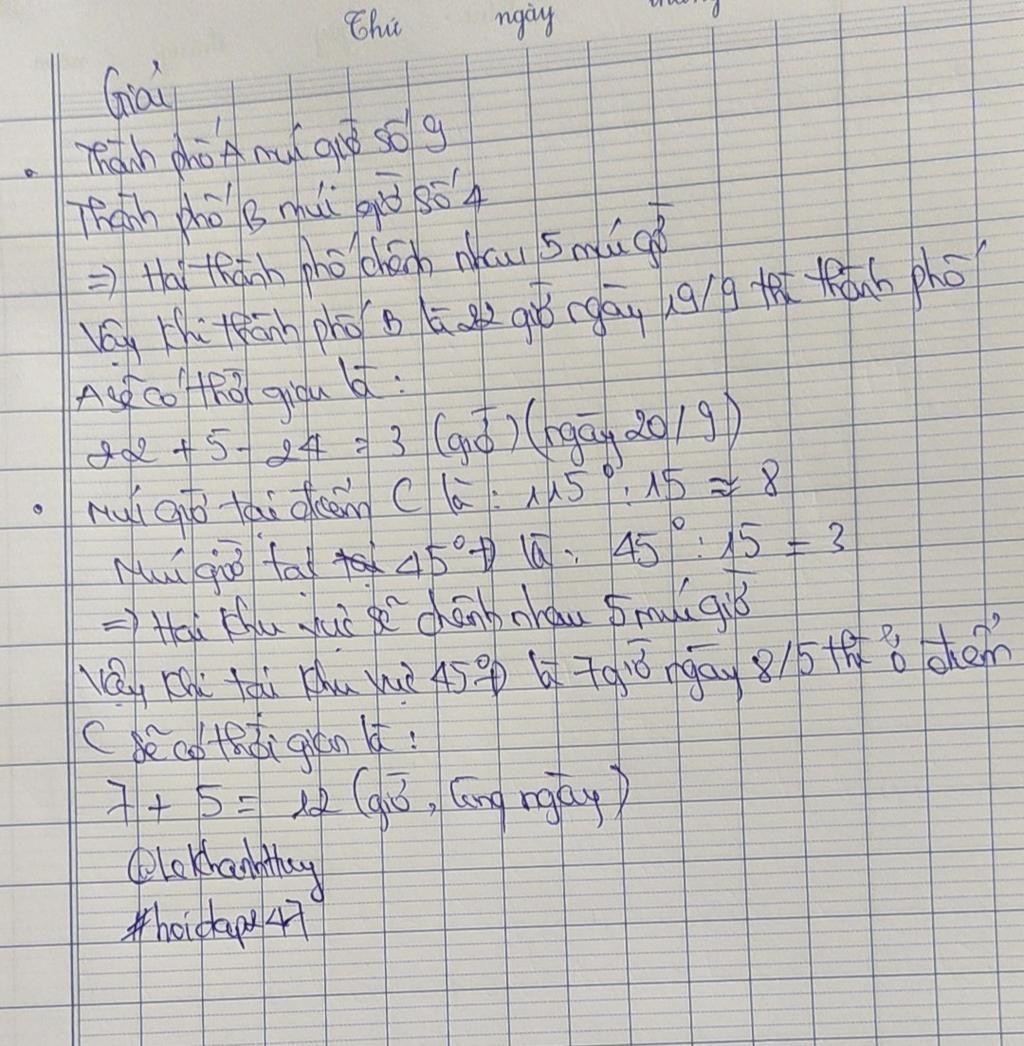 Thứ ngày tháng
Giải
Thành phố A múi giờ số 9
Thành phố B múi giờ số 4
=> Hai thành phố chênh nhau 5 múi giờ
Vậy khi thành phố B là 22 giờ ngày 19/9 thì thành phố
A sẽ có thời gian là :
22 + 5 - 24 = 3 (giờ) (ngày 20/9)
Múi giờ tại điểm C là : 115° : 15 ≈ 8
Múi giờ tại 45°Đ là : 45° : 15 = 3
=> Hai khu vực sẽ chênh nhau 5 múi giờ
Vậy khi tại khu vực 45°Đ là 7 giờ ngày 8/5 thì ở điểm
C sẽ có thời gian là :
7 + 5 = 12 (giờ, cùng ngày)
@LeKhanhHuy
#hoidap247